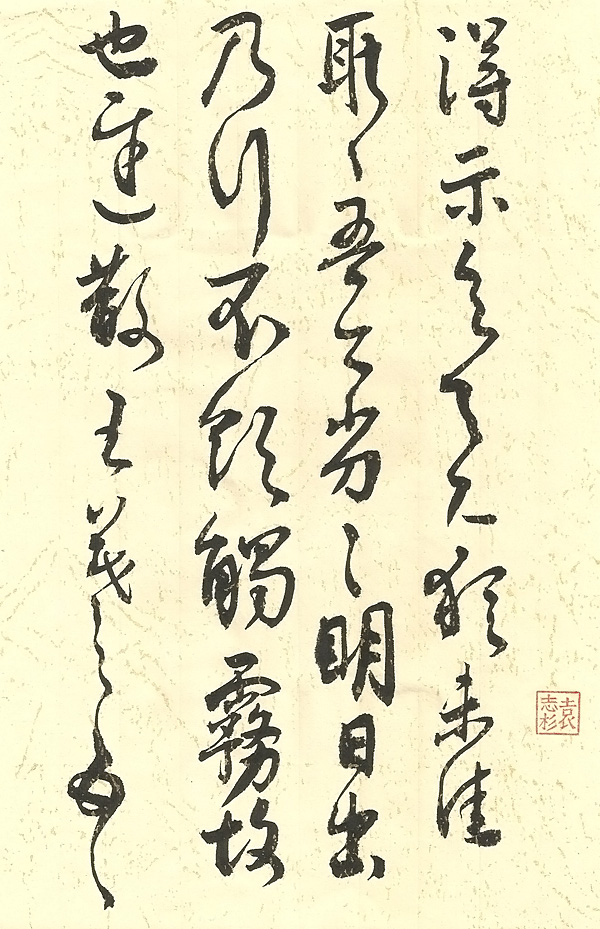 得示知足下猶未佳
耿〻吾亦劣〻明日出
乃行不欲觸霧故
也遲散王羲之頓首
袁志杉